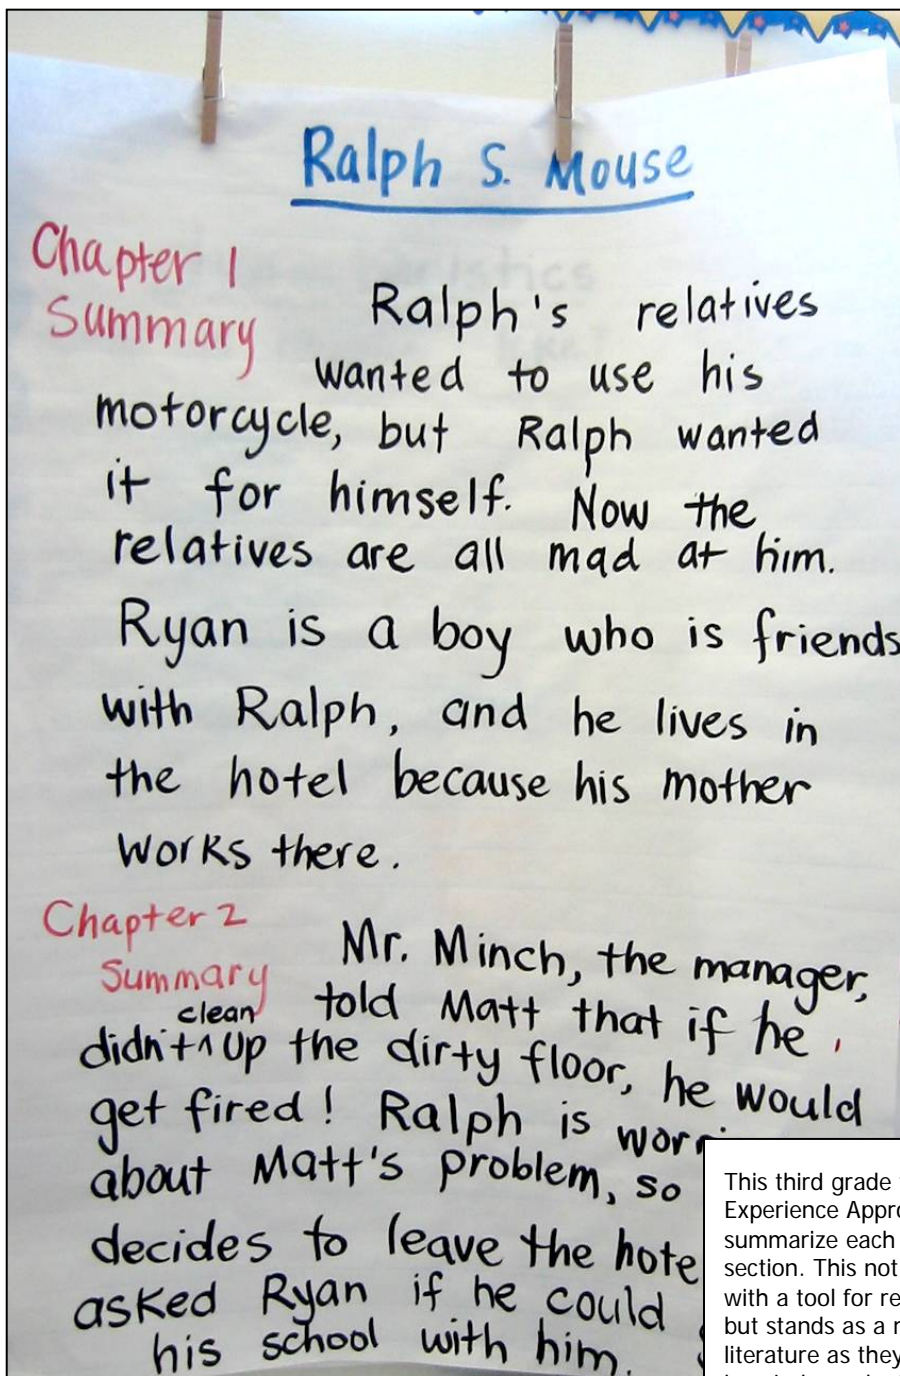 Ralph S. Mouse
Chapter 1
Summary
Ralph's relatives
wanted to use his
motorcycle, but Ralph wanted
it for himself. Now the
relatives are all mad at him.
Ryan is a boy who is friends
with Ralph, and he lives in
the hotel because his mother
works there.
Chapter 2
Summary
Mr. Minch, the manager,
told Matt that if he
didn't ^ clean up the dirty floor, he would
get fired! Ralph is
about Matt's problem, so
decides to leave the
asked Ryan if he could
his school with him.
This third grade
Experience
summarize each
section. This not
with a tool for
but stands as a
literature as they